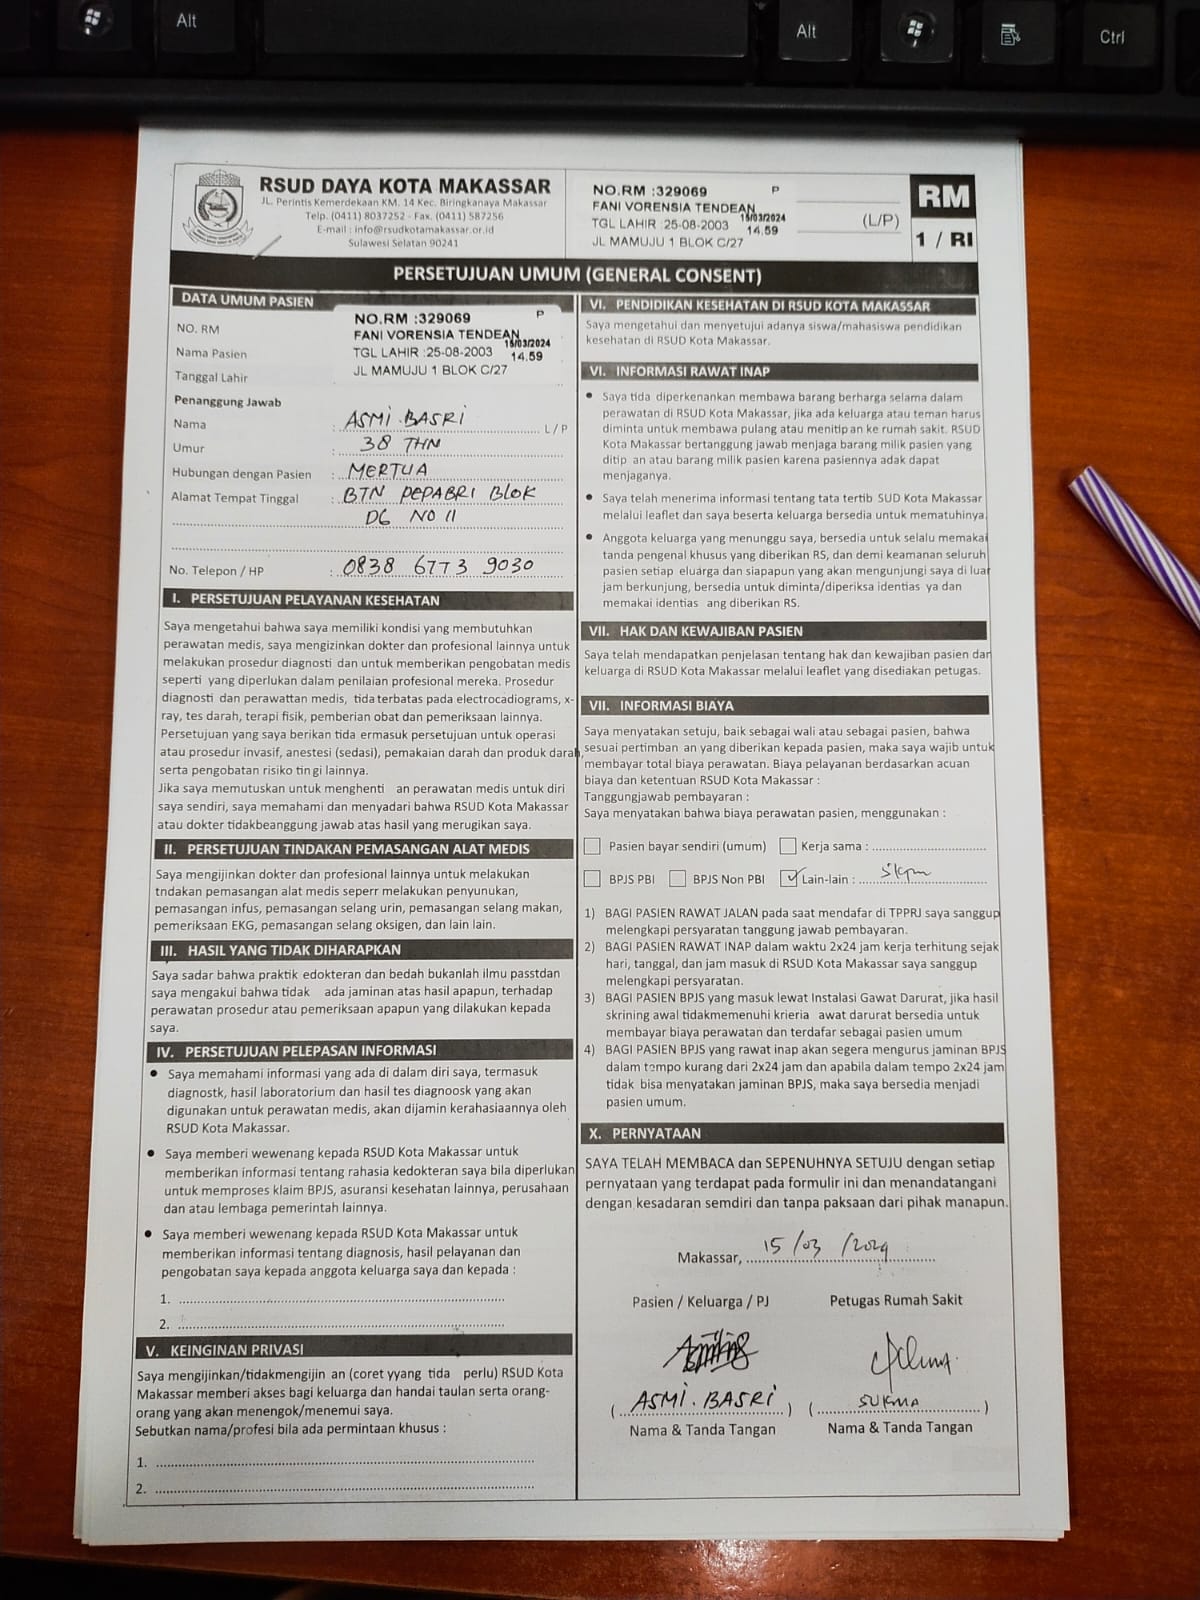 Alt
Alt
Ctrl
RSUD DAYA KOTA MAKASSAR
JL. Perintis Kemerdekaan KM. 14 Kec. Biringkanaya Makassar
Telp. (0411) 8037252 - Fax. (0411) 587256
E-mail : info@rsudkotamakassar.or.id
Sulawesi Selatan 90241
NO.RM :329069 P
FANI VORENSIA TENDEAN
15/03/2024
TGL LAHIR :25-08-2003 14.59
JL MAMUJU 1 BLOK C/27
(L/P)
RM
1 / RI
PERSETUJUAN UMUM (GENERAL CONSENT)
DATA UMUM PASIEN
NO. RM
Nama Pasien
Tanggal Lahir
NO.RM :329069 P
FANI VORENSIA TENDEAN
15/03/2024
TGL LAHIR :25-08-2003 14.59
JL MAMUJU 1 BLOK C/27
Penanggung Jawab
Nama : ASMI.BASRI L / P
Umur : 38 THN
Hubungan dengan Pasien : MERTUA
Alamat Tempat Tinggal : BTN PEPABRI Blok
D6 NO 11
No. Telepon / HP : 0838 6773 9030
I. PERSETUJUAN PELAYANAN KESEHATAN
Saya mengetahui bahwa saya memiliki kondisi yang membutuhkan
perawatan medis, saya mengizinkan dokter dan profesional lainnya untuk
melakukan prosedur diagnosti dan untuk memberikan pengobatan medis
seperti yang diperlukan dalam penilaian profesional mereka. Prosedur
diagnosti dan perawattan medis, tida terbatas pada electrocadiograms, x-
ray, tes darah, terapi fisik, pemberian obat dan pemeriksaan lainnya.
Persetujuan yang saya berikan tida ermasuk persetujuan untuk operasi
atau prosedur invasif, anestesi (sedasi), pemakaian darah dan produk darah,
serta pengobatan risiko tin gi lainnya.
Jika saya memutuskan untuk menghenti an perawatan medis untuk diri
saya sendiri, saya memahami dan menyadari bahwa RSUD Kota Makassar
atau dokter tidakbeanggung jawab atas hasil yang merugikan saya.
II. PERSETUJUAN TINDAKAN PEMASANGAN ALAT MEDIS
Saya mengijinkan dokter dan profesional lainnya untuk melakukan
tndakan pemasangan alat medis seperr melakukan penyunukan,
pemasangan infus, pemasangan selang urin, pemasangan selang makan,
pemeriksaan EKG, pemasangan selang oksigen, dan lain lain.
III. HASIL YANG TIDAK DIHARAPKAN
Saya sadar bahwa praktik edokteran dan bedah bukanlah ilmu passtdan
saya mengakui bahwa tidak ada jaminan atas hasil apapun, terhadap
perawatan prosedur atau pemeriksaan apapun yang dilakukan kepada
saya.
IV. PERSETUJUAN PELEPASAN INFORMASI
• Saya memahami informasi yang ada di dalam diri saya, termasuk
diagnostk, hasil laboratorium dan hasil tes diagnoosk yang akan
digunakan untuk perawatan medis, akan dijamin kerahasiaannya oleh
RSUD Kota Makassar.
• Saya memberi wewenang kepada RSUD Kota Makassar untuk
memberikan informasi tentang rahasia kedokteran saya bila diperlukan
untuk memproses klaim BPJS, asuransi kesehatan lainnya, perusahaan
dan atau lembaga pemerintah lainnya.
• Saya memberi wewenang kepada RSUD Kota Makassar untuk
memberikan informasi tentang diagnosis, hasil pelayanan dan
pengobatan saya kepada anggota keluarga saya dan kepada :
1.
2.
V. KEINGINAN PRIVASI
Saya mengijinkan/tidakmengijin an (coret yyang tida perlu) RSUD Kota
Makassar memberi akses bagi keluarga dan handai taulan serta orang-
orang yang akan menengok/menemui saya.
Sebutkan nama/profesi bila ada permintaan khusus :
1.
2.
VI. PENDIDIKAN KESEHATAN DI RSUD KOTA MAKASSAR
Saya mengetahui dan menyetujui adanya siswa/mahasiswa pendidikan
kesehatan di RSUD Kota Makassar.
VI. INFORMASI RAWAT INAP
• Saya tida diperkenankan membawa barang berharga selama dalam
perawatan di RSUD Kota Makassar, jika ada keluarga atau teman harus
diminta untuk membawa pulang atau menitip an ke rumah sakit. RSUD
Kota Makassar bertanggung jawab menjaga barang milik pasien yang
ditip an atau barang milik pasien karena pasiennya adak dapat
menjaganya.
• Saya telah menerima informasi tentang tata tertib SUD Kota Makassar
melalui leaflet dan saya beserta keluarga bersedia untuk mematuhinya.
• Anggota keluarga yang menunggu saya, bersedia untuk selalu memakai
tanda pengenal khusus yang diberikan RS, dan demi keamanan seluruh
pasien setiap eluarga dan siapapun yang akan mengunjungi saya di luar
jam berkunjung, bersedia untuk diminta/diperiksa identias ya dan
memakai identias ang diberikan RS.
VII. HAK DAN KEWAJIBAN PASIEN
Saya telah mendapatkan penjelasan tentang hak dan kewajiban pasien dan
keluarga di RSUD Kota Makassar melalui leaflet yang disediakan petugas.
VII. INFORMASI BIAYA
Saya menyatakan setuju, baik sebagai wali atau sebagai pasien, bahwa
sesuai pertimban an yang diberikan kepada pasien, maka saya wajib untuk
membayar total biaya perawatan. Biaya pelayanan berdasarkan acuan
biaya dan ketentuan RSUD Kota Makassar :
Tanggungjawab pembayaran :
Saya menyatakan bahwa biaya perawatan pasien, menggunakan :
Pasien bayar sendiri (umum) Kerja sama :
BPJS PBI BPJS Non PBI Lain-lain :
1) BAGI PASIEN RAWAT JALAN pada saat mendafar di TPPRJ saya sanggup
melengkapi persyaratan tanggung jawab pembayaran.
2) BAGI PASIEN RAWAT INAP dalam waktu 2x24 jam kerja terhitung sejak
hari, tanggal, dan jam masuk di RSUD Kota Makassar saya sanggup
melengkapi persyaratan.
3) BAGI PASIEN BPJS yang masuk lewat Instalasi Gawat Darurat, jika hasil
skrining awal tidakmemenuhi krieria awat darurat bersedia untuk
membayar biaya perawatan dan terdafar sebagai pasien umum
4) BAGI PASIEN BPJS yang rawat inap akan segera mengurus jaminan BPJS
dalam tempo kurang dari 2x24 jam dan apabila dalam tempo 2x24 jam
tidak bisa menyatakan jaminan BPJS, maka saya bersedia menjadi
pasien umum.
X. PERNYATAAN
SAYA TELAH MEMBACA dan SEPENUHNYA SETUJU dengan setiap
pernyataan yang terdapat pada formulir ini dan menandatangani
dengan kesadaran semdiri dan tanpa paksaan dari pihak manapun.
Makassar, 15/03/2024
Pasien / Keluarga / PJ Petugas Rumah Sakit
( ASMI.BASRI ) ( SUKMA )
Nama & Tanda Tangan Nama & Tanda Tangan